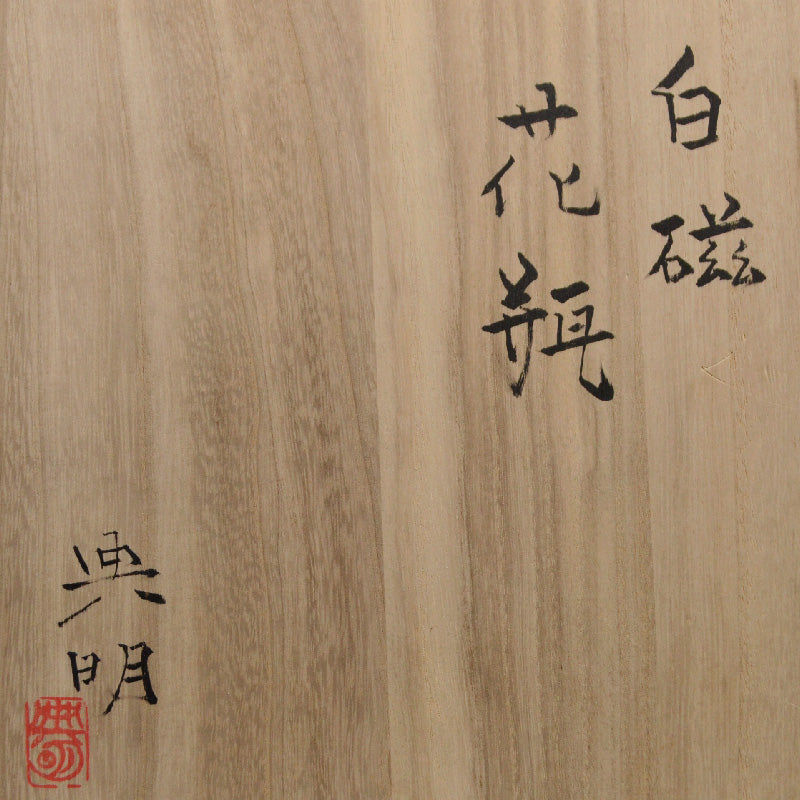 白磁
花瓶
興明